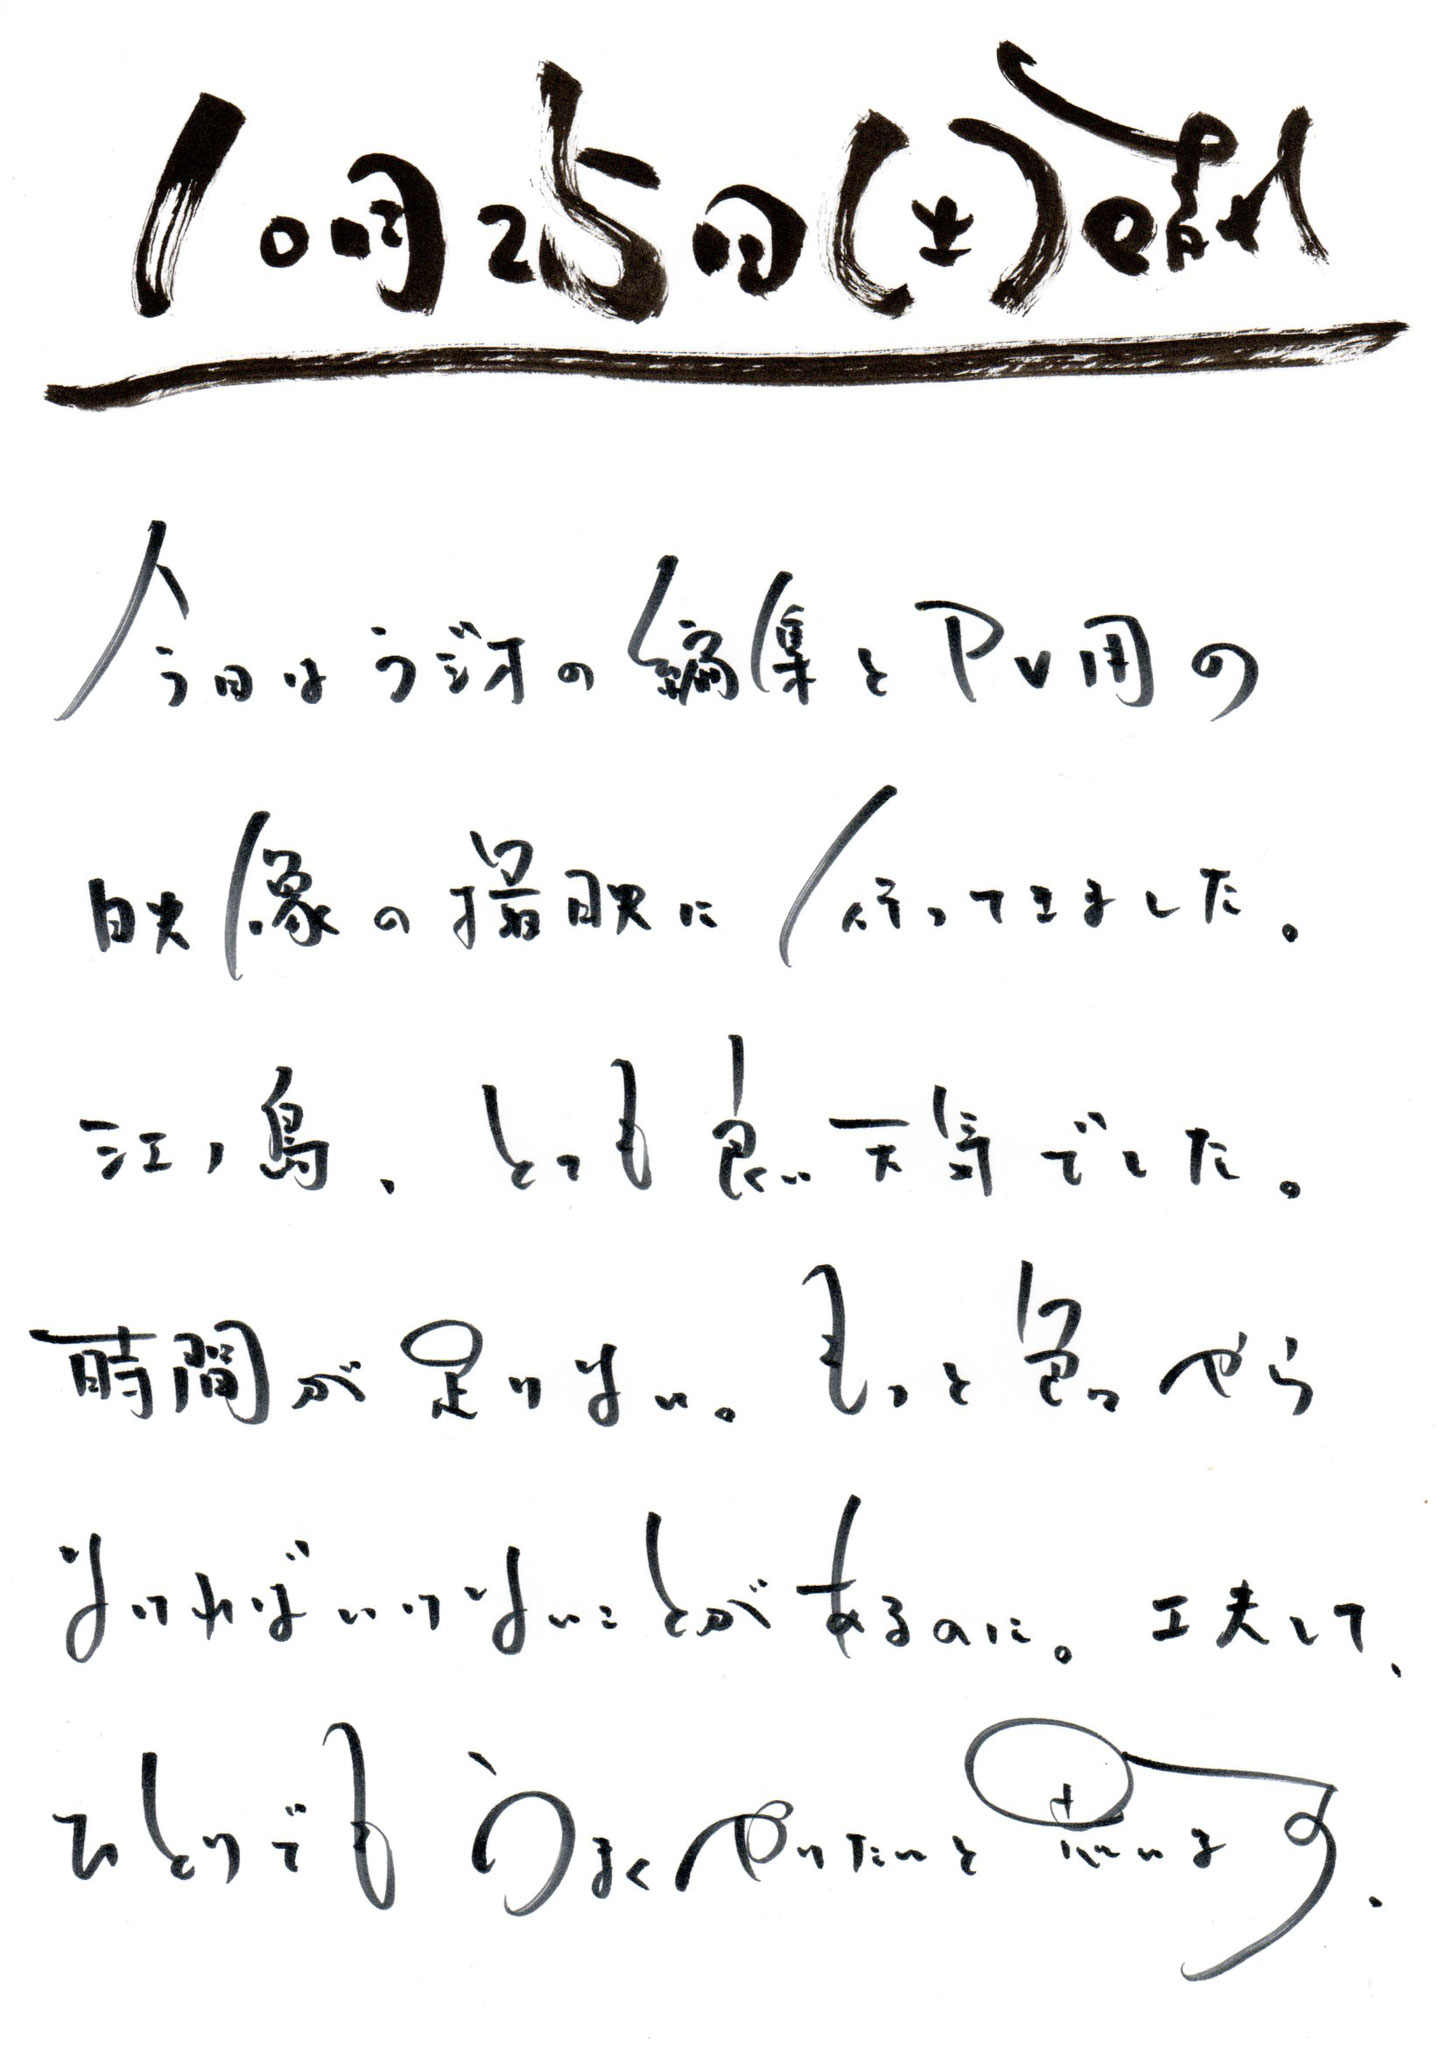 10月25日(土)晴れ
今日はラジオの編集とPV用の
映像の撮映に行ってきました。
江ノ島、とても良い天気でした。
時間が足りない。もっと色々やら
なければいけないことがあるのに。工夫して、
ひとりでもうまくやりたいと思います.